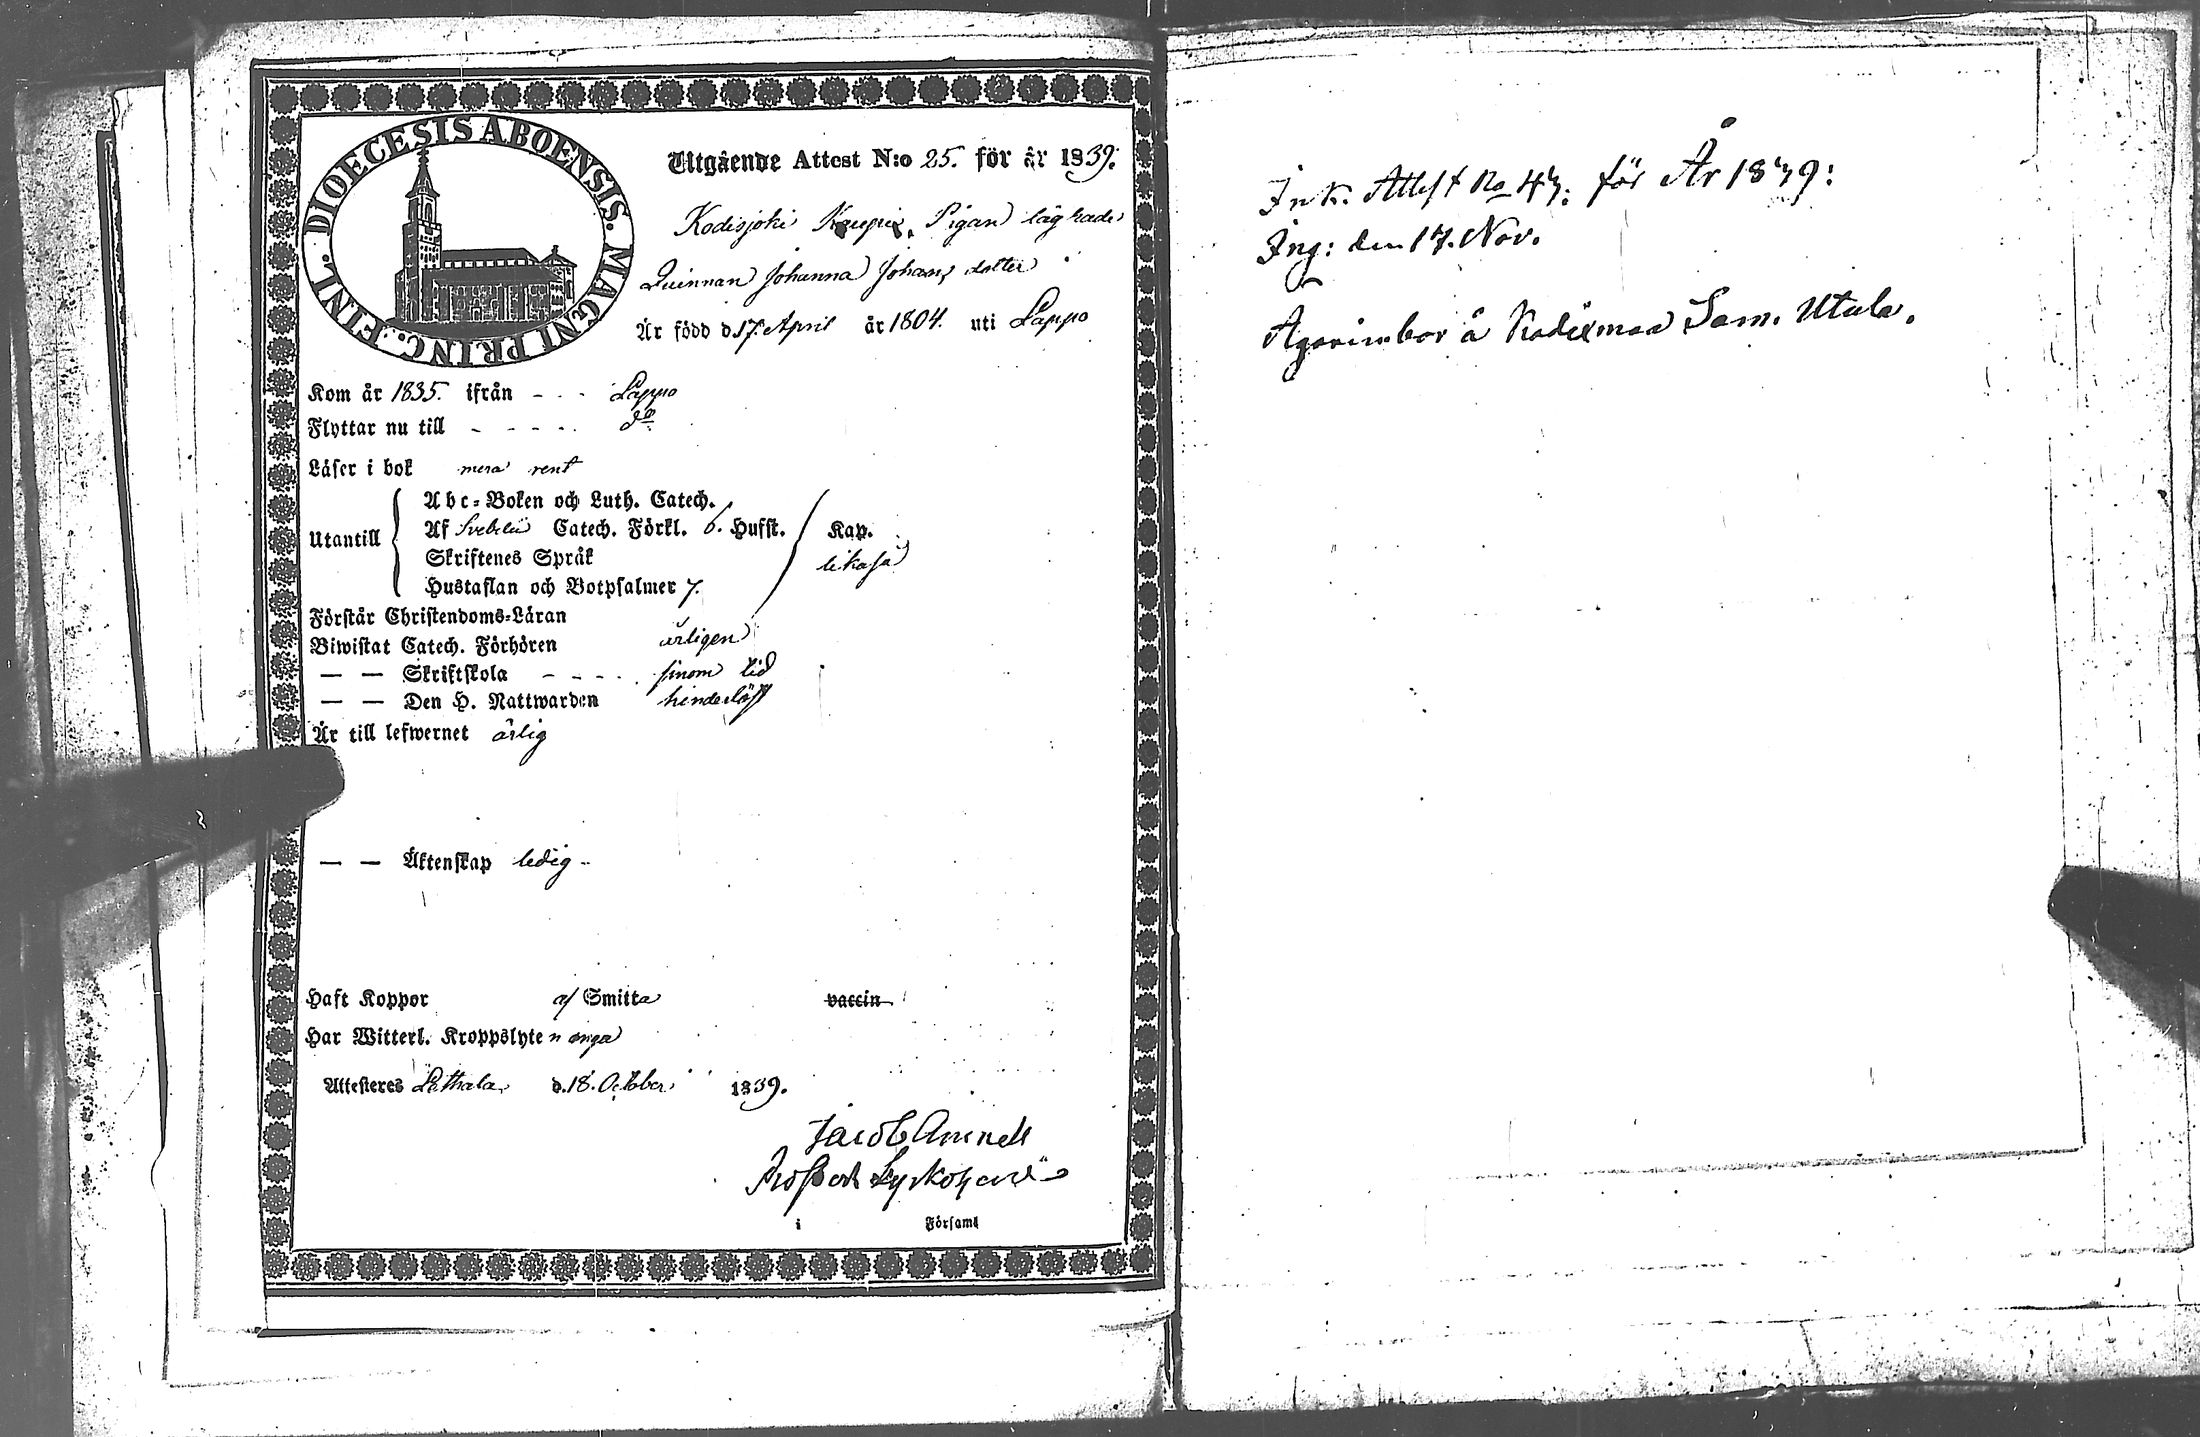 DIOECESIS ABOENSIS. MAGNI PRINC. FINL.
Utgående Attest N:o 25. för år 1839.
Kodisjoki Pigan lägrade
Qvinnan Johanna Johans dotter
Är född d 17. April år 1804. uti Lappo
Kom år 1835. ifrån - - - Lappo
Flyttar nu till - - - - - do
Läser i bok mera rent
Utantill
Abc-Boken och Luth. Catech.
Af Svebelii Catech. Förkl. 6. Hufst. Kap.
Skriftenes Språk likaså
Hustaflan och Botpsalmer 7.
Förstår Christendoms-Läran
Biwistat Catech. Förhören årligen
— — Skriftskola - - - - sinom tid
— — Den H. Nattwarden hinderlöst
Är till lefwernet ärlig
— — Äktenskap ledig
Haft Koppor af Smitta vaccin
Har Witterl. Kroppslyten inga
Attesteres Letthala d. 18. October 1839.
Jacob
i Församl
Ink. Attest No 47. för År 1839:
Ing: den 17. Nov.
å Sam. Utula.